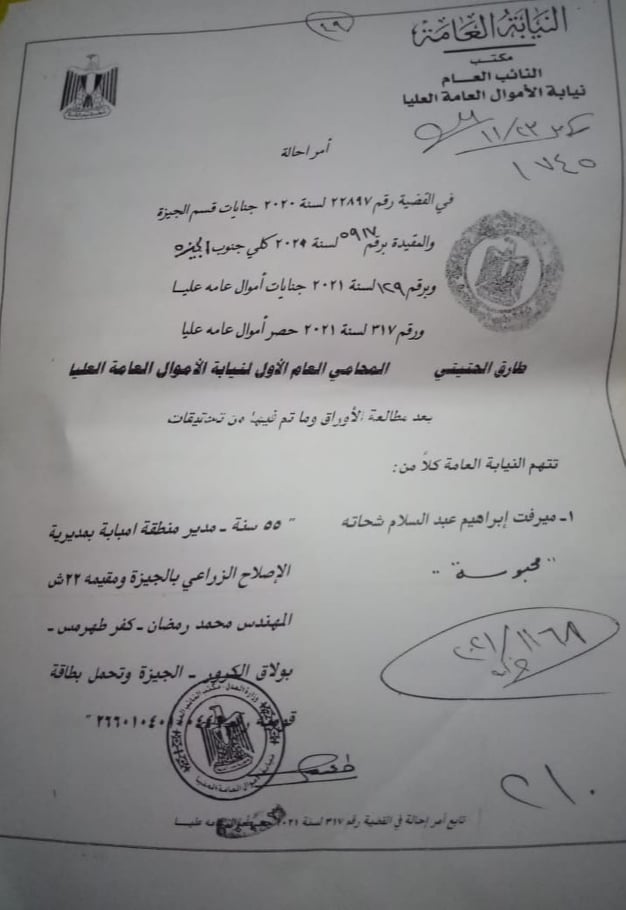 ٤٩
النيابة العامة
مكتب
النائب العام
نيابة الأموال العامة العليا
١١/٢٣
١٧٤٥
أمر احالة
في القضية رقم ٢٢٨٩٧ لسنة ٢٠٢٠ جنايات قسم الجيزة
والمقيدة برقم ٥٩١٧ لسنة ٢٠٢٠ كلي جنوب الجيزه
وبرقم ١٢٩ لسنة ٢٠٢١ جنايات أموال عامه عليا
ورقم ٣١٧ لسنة ٢٠٢١ حصر أموال عامه عليا
طارق الحتيتي المحامي العام الأول لنيابة الأموال العامة العليا
بعد مطالعة الأوراق وما تم فيها من تحقيقات
تتهم النيابة العامة كلاً من:
١ـ ميرفت إبراهيم عبد السلام شحاته " ٥٥ سنة ـ مدير منطقة امبابة بمديرية
" محبوسة " الإصلاح الزراعي بالجيزة ومقيمه ٢٢ش
المهندس محمد رمضان ـ كفر طهرمس ـ
بولاق الكرور ـ الجيزة وتحمل بطاقة
٢٠٢١/١١٦٨
٢١٠
نيابة الأموال العامة العليا
تابع أمر إحالة في القضية رقم ٣١٧ لسنة ٢٠٢١ عليا